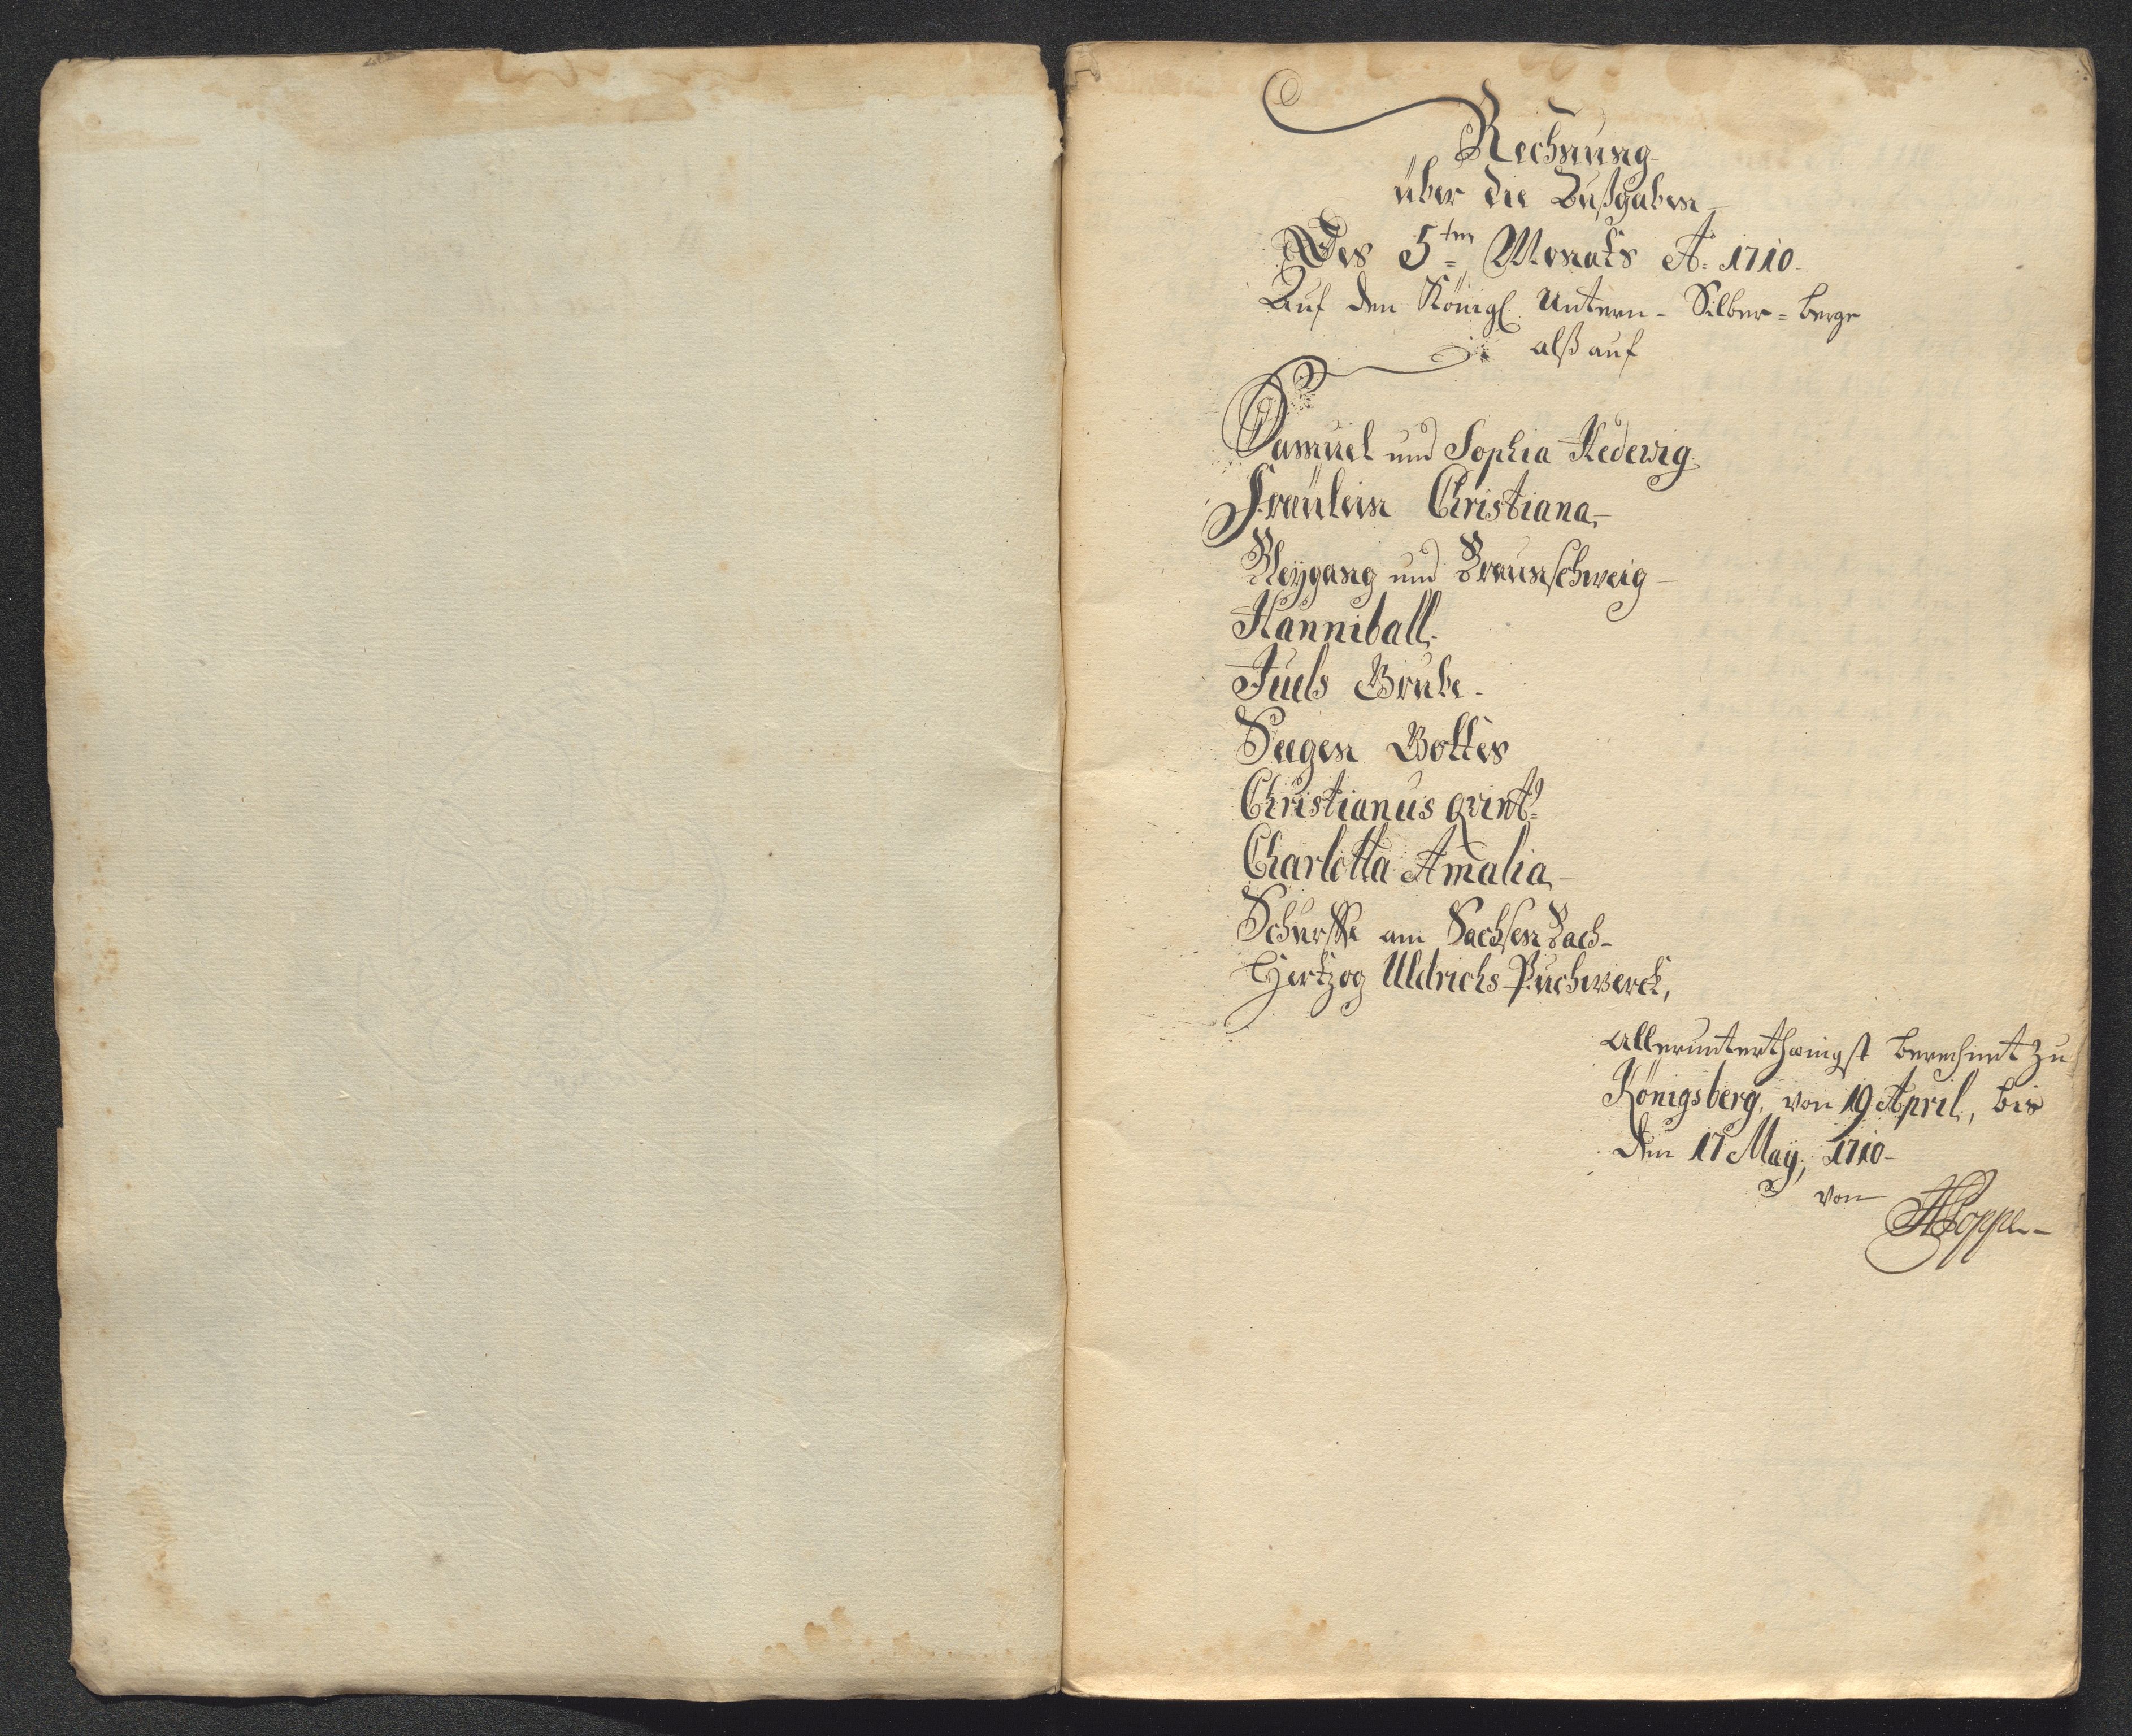 Rechnung
über die Außgaben
Des 5ten Monats Aō. 1710.
Auf den Königl. Untern-Silber-berge
alß auf
Samuel und Sophia Hedewig
Freülein Christiana,
Bleygang und Braunschweig
Hanniball,
Juels Grube.
Seegen Gottes
Christianus qvint9
Charlotta Amalia,
Schürffe am Sachsen Bach
Hertzog Uldrichs Puchwerck,
Allerunterthänigst berechnet zu
Königsberg, von 19 April, bis
den 17 May, 1710
von
HPoppe